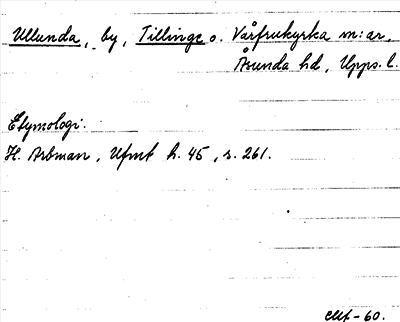 Ullunda, by, Tillinge o. Vårfrukyrka sn:ar,
Åsunda hd, Upps. l.
Etymologi:
H. Arbman, Ufmt h. 45, s. 261.
-60.